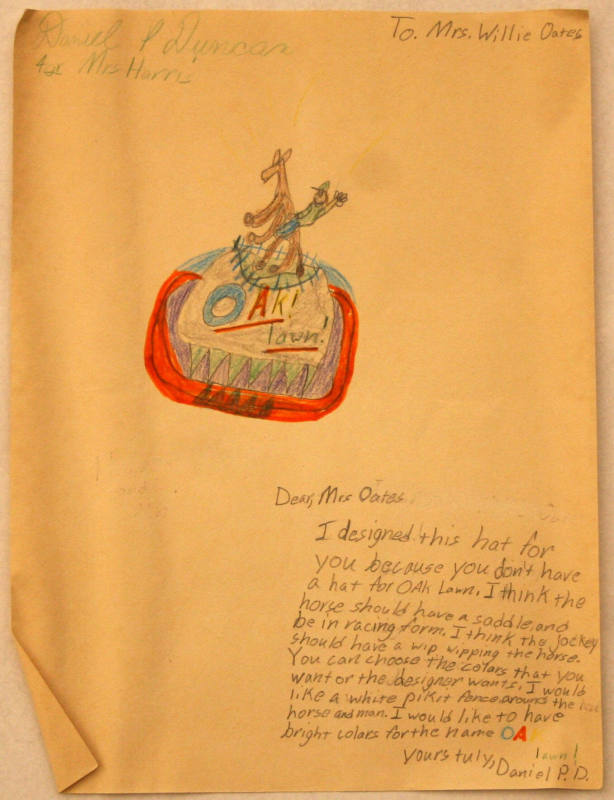 Daniel P Duncan
To. Mrs. Willie Oates
Mrs Harris
OAk!
lawn!
Dear, Mrs Oates
I designed this hat for
you because you don't have
a hat for OAk Lawn. I think the
horse should have a saddle, and
be in racing form. I think the jockey
should have a wip wipping the horse.
You can choose the colars that you
want or the designer wants. I would
like a white pikit fence around the
horse and man. I would like to have
bright colars for the name OA
lawn!
yours tuly,
Daniel P. D.